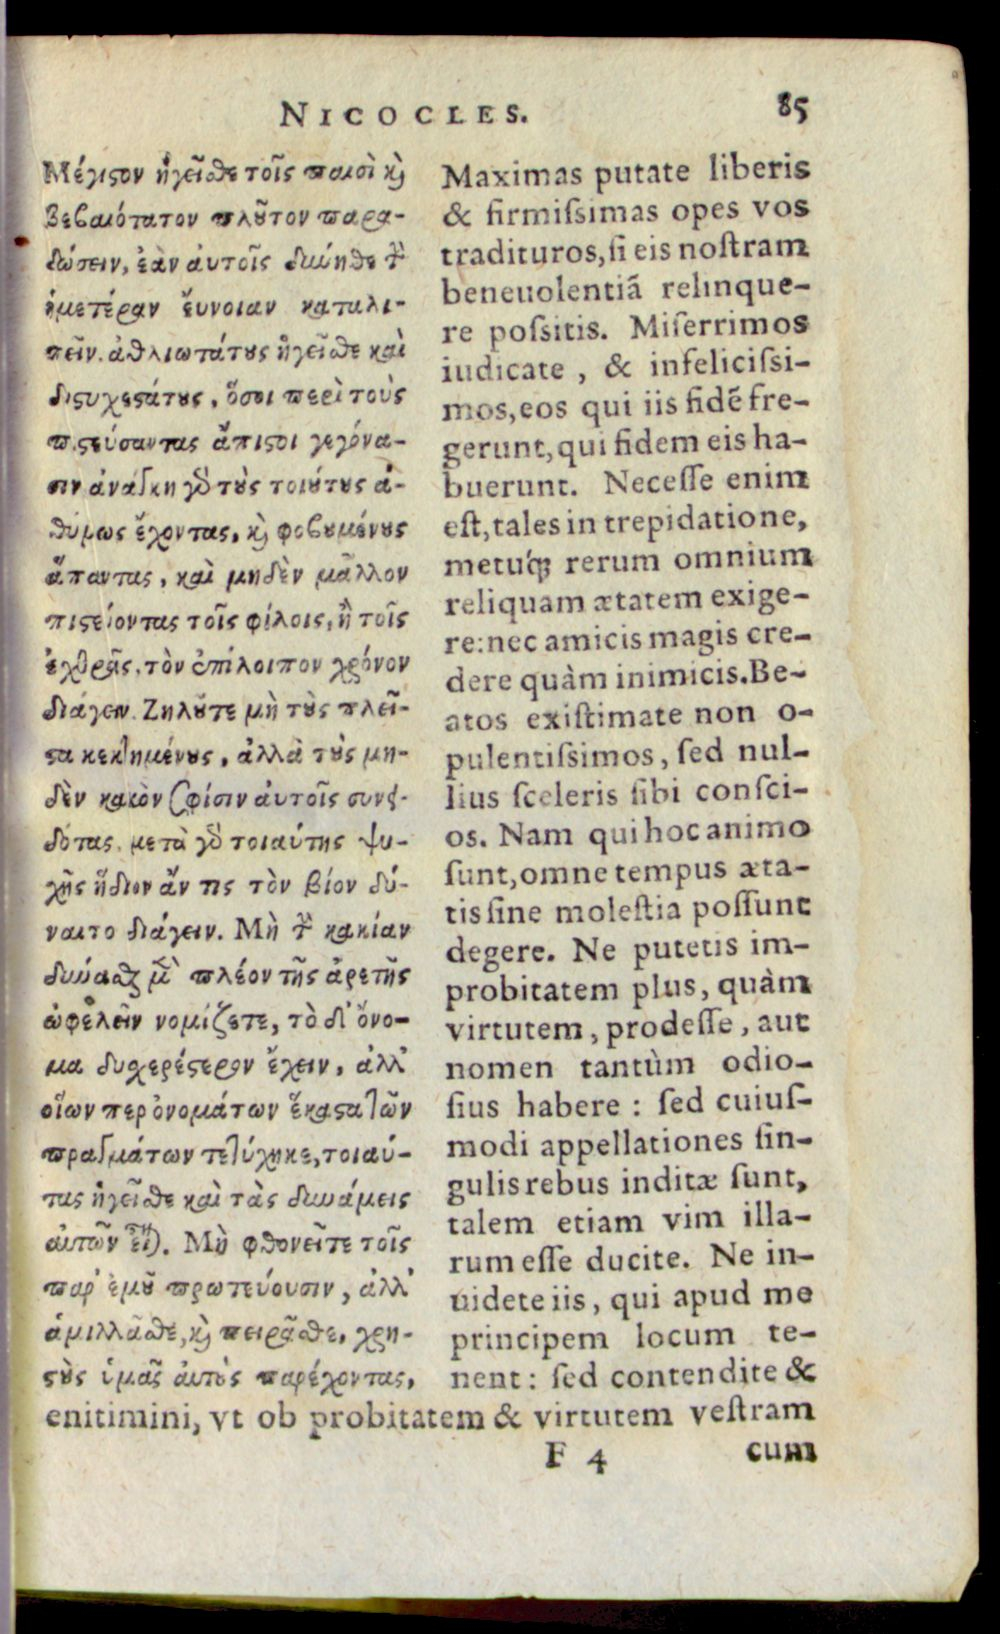 NICOCLES. 85
Μέγιστον ἡγεῖσθε τοῖς παισὶ καὶ
βεβαιότατον πλοῦτον παρα-
δώσειν, ἐὰν αὐτοῖς δύνησθε τὴν
ἡμετέραν εὔνοιαν καταλι-
πεῖν. ἀθλιωτάτους ἡγεῖσθε καὶ
διστυχεστάτους, ὅσοι περὶ τοὺς
πιστεύσαντας ἄπιστοι γεγόνα-
σιν ἀνάγκη γὰρ τοὺς τοιούτους ἀ-
θύμως ἔχοντας, καὶ φοβουμένους
ἅπαντας, καὶ μηδὲν μᾶλλον
πιστεύοντας τοῖς φίλοις, ἢ τοῖς
ἐχθροῖς, τὸν ἐπίλοιπον χρόνον
διάγειν. Ζηλοῦτε μὴ τοὺς πλεῖ-
στα κεκτημένους, ἀλλὰ τοὺς μη-
δὲν κακὸν σφίσιν αὐτοῖς συνει-
δότας. μετὰ γὰρ τοιαύτης ψυ-
χῆς ἥδιον ἄν τις τὸν βίον δύ-
ναιτο διάγειν. Μὴ τὴν κακίαν
δύνασθαι μὲν πλέον τῆς ἀρετῆς
ὠφελεῖν νομίζετε, τὸ δ' ὄνο-
μα δυσχερέστερον ἔχειν, ἀλλ'
οἵων περ ὀνομάτων ἕκαστα τῶν
πραγμάτων τετύχηκε, τοιαύ-
τας ἡγεῖσθε καὶ τὰς δυνάμεις
αὐτῶν εἶναι. Μὴ φθονεῖτε τοῖς
παρ' ἐμοῦ πρωτεύουσιν, ἀλλ'
ἁμιλλᾶσθε, καὶ πειρᾶσθε, χρη-
στοὺς ὑμᾶς αὐτοὺς παρέχοντας,
Maximas putate liberis
& firmiſsimas opes vos
tradituros, ſi eis noſtram
beneuolentiã relinque-
re poſsitis. Miſerrimos
iudicate, & infeliciſsi-
mos, eos qui iis fidẽ fre-
gerunt, qui fidem eis ha-
buerunt. Neceſſe enim
eſt, tales in trepidatione,
metuq́; rerum omnium
reliquam ætatem exige-
re: nec amicis magis cre-
dere quàm inimicis. Be-
atos exiſtimate non o-
pulentiſsimos, ſed nul-
lius ſceleris ſibi conſci-
os. Nam qui hoc animo
ſunt, omne tempus æta-
tis ſine moleſtia poſſunt
degere. Ne putetis im-
probitatem plus, quàm
virtutem, prodeſſe, aut
nomen tantùm odio-
ſius habere: ſed cuiuſ-
modi appellationes ſin-
gulis rebus inditæ ſunt,
talem etiam vim illa-
rum eſſe ducite. Ne in-
uidete iis, qui apud me
principem locum te-
nent: ſed contendite &
enitimini, vt ob probitatem & virtutem veſtram
F 4 cum